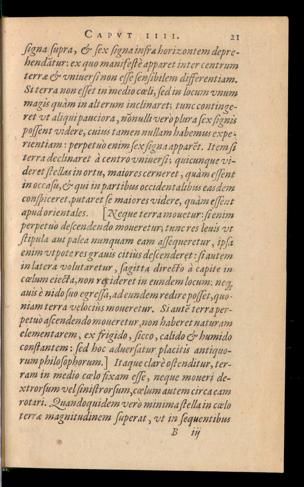 CAPVT IIII. 21
signa supra, & sex signa infra horizontem depre-
hendãtur: ex quo manifestè apparet inter centrum
terræ & vniuersi non esse sensibilem differentiam.
Si terra non esset in medio cœli, sed in locum vnum
magis quàm in alterum inclinaret: tunc continge-
ret vt aliqui pauciora, nõnulli verò plura sex signis
possent videre, cuius tamen nullam habemus expe-
rientiam: perpetuò enim sex signa apparẽt. Item si
terra declinaret à centro vniuersi, quicunque vi-
deret stellas in ortu, maiores cerneret, quàm essent
in occasu, & qui in partibus occidentalibus easdem
conspiceret, putaret se maiores videre, quàm essent
apud orientales. [Neque terra mouetur: si enim
perpetuò descendendo moueretur, tunc res leuis vt
stipula aut palea nunquam eam assequeretur, ipsa
enim vtpote res grauis citius descenderet: si autem
in latera volutaretur, sagitta directò à capite in
cœlum eiecta, non recideret in eundem locum: neq;
auis è nido suo egressa, ad eundem redire posset, quo-
niam terra velocius moueretur. Si autẽ terra per-
petuò ascendendo moueretur, non haberet naturam
elementarem, ex frigido, sicco, calido & humido
constantem: sed hoc aduersatur placitis antiquo-
rum philosophorum.] Itaque clarè ostenditur, ter-
ram in medio cœlo fixam esse, neque moueri de-
xtrorsum vel sinistrorsum, cœlum autem circa eam
rotari. Quandoquidem vero minima stella in cœlo
terræ magnitudinem superat, vt in sequentibus
B iij